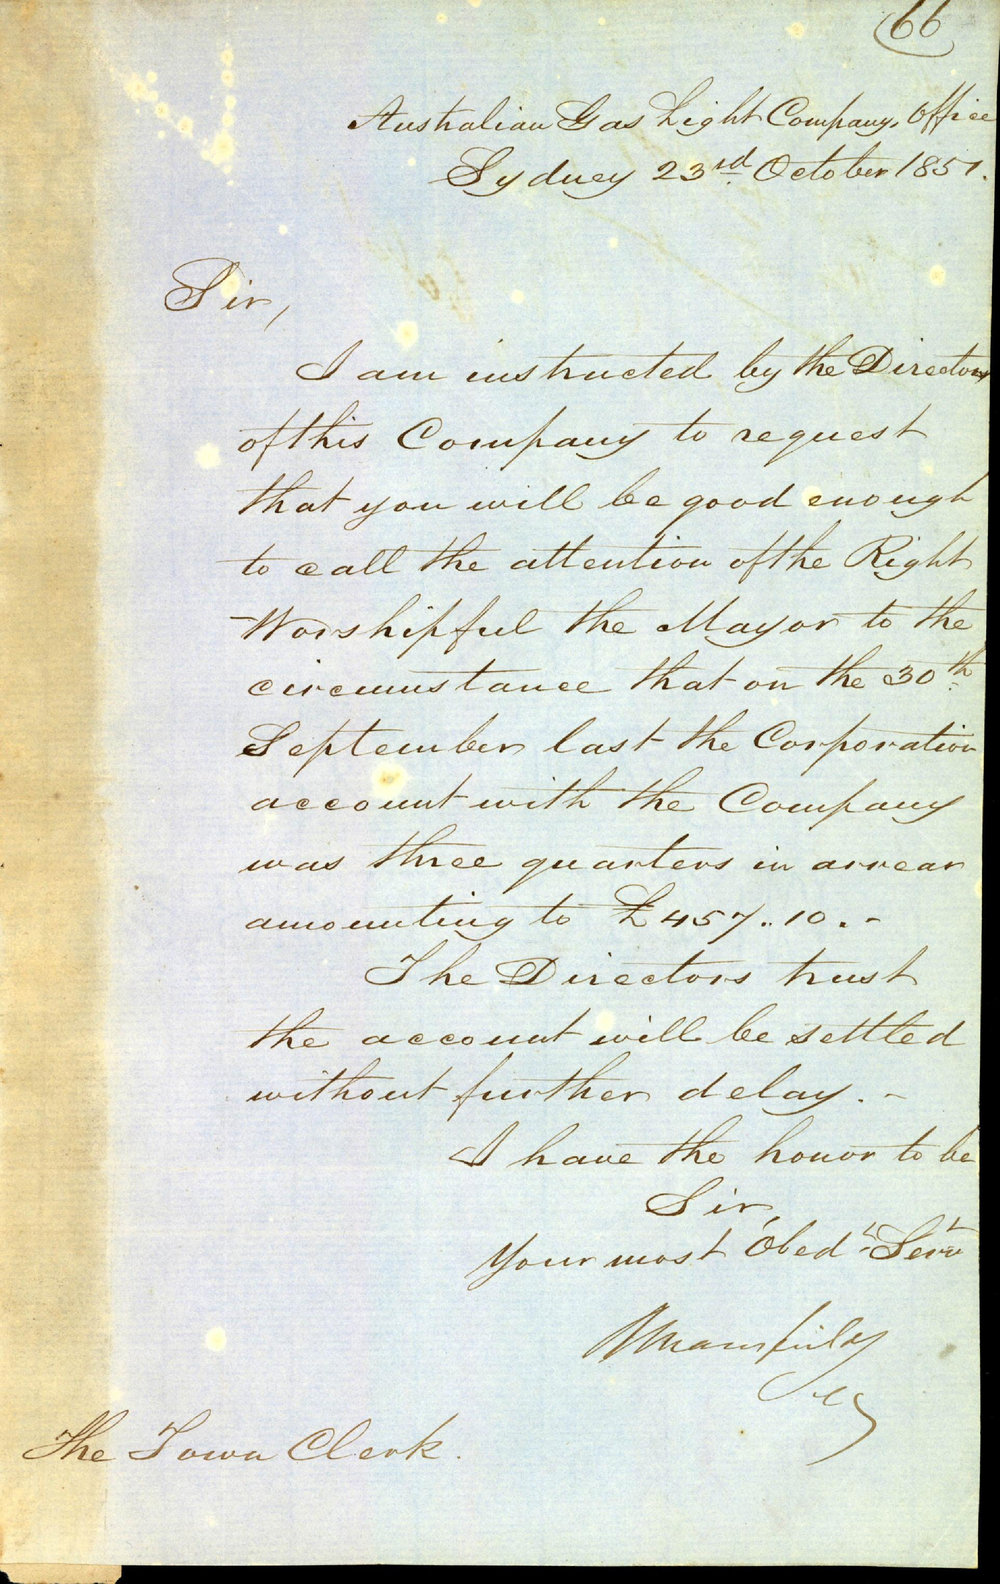 66
Australian Gas Light Company, Office
Sydney 23rd October 1851.
Sir,
I am instructed by the Directors
of this Company to request
that you will be good enough
to call the attention of the Right
Worshipful the Mayor to the
circumstance that on the 30th
September last the Corporation
account with the Company
was three quarters in arrear
amounting to £457..10.-
The Directors trust
the account will be settled
without further delay.-
I have the honor to be
Sir,
Your most Obedt Servt
Mansfield
Secy
The Town Clerk.